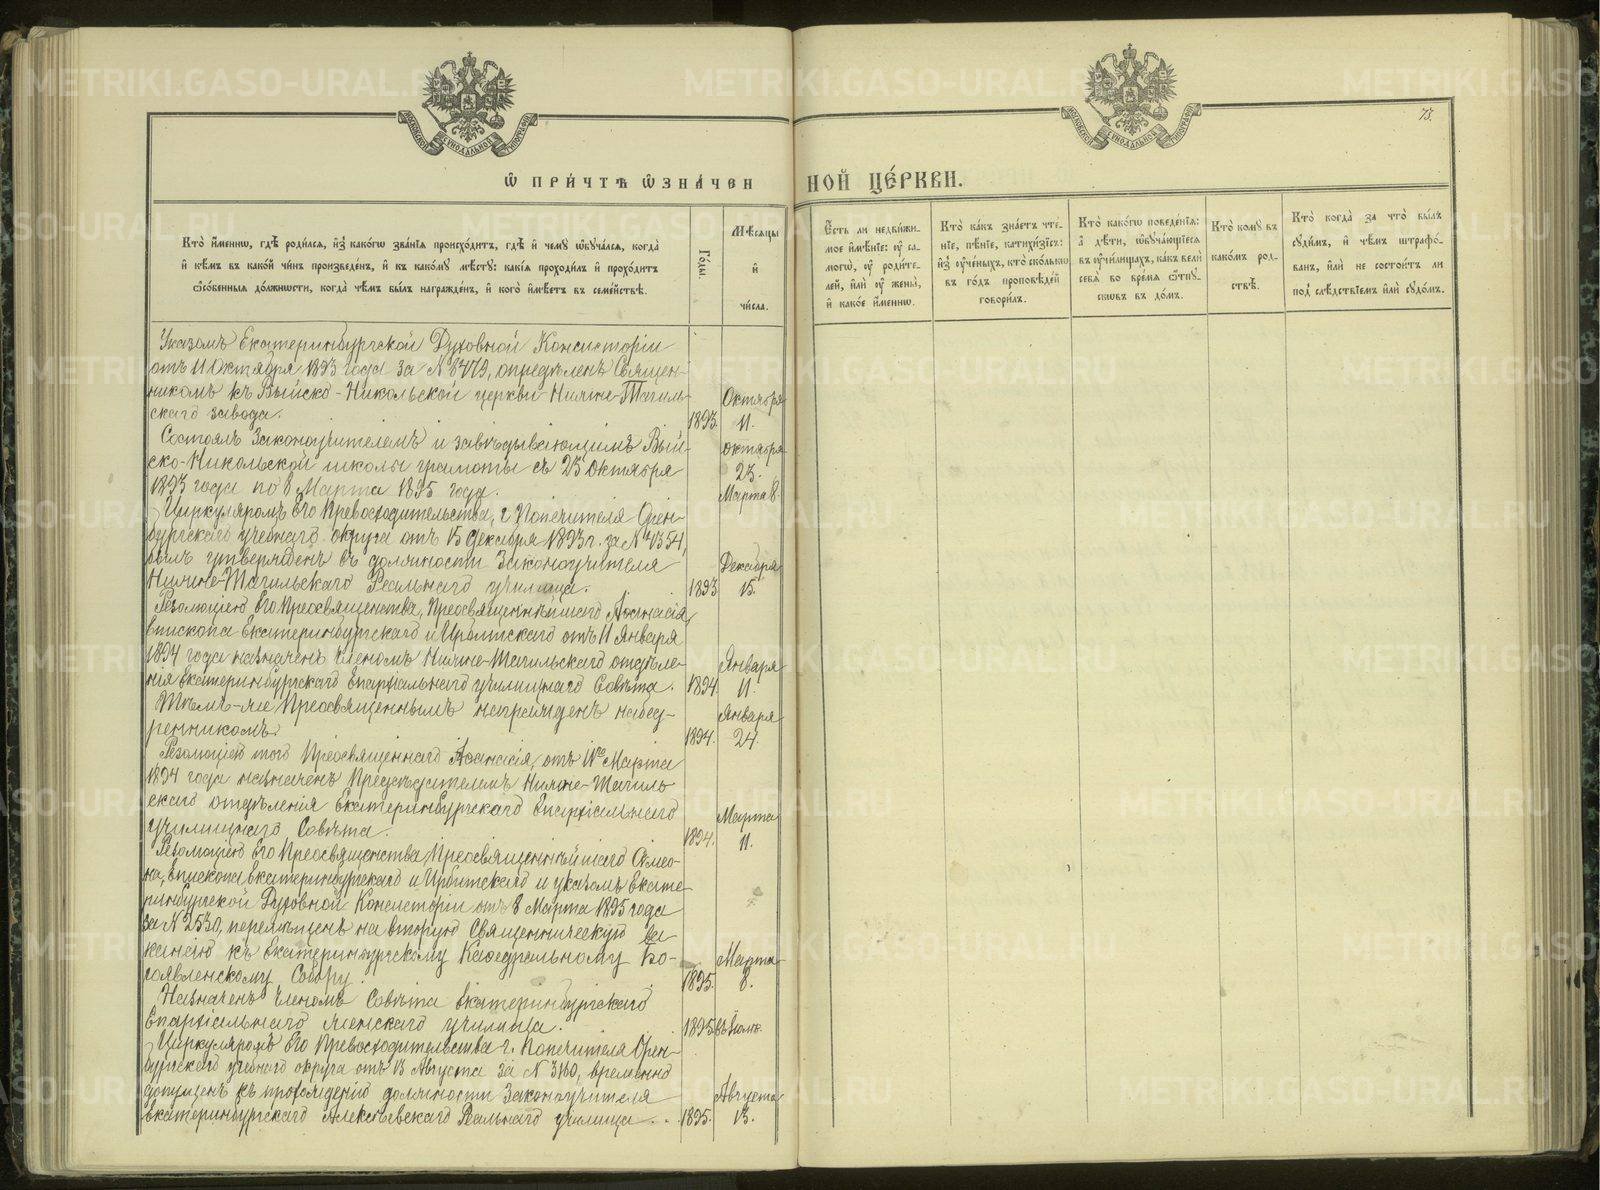 METRIKI.GASO-URAL.RU
75.
МОСКОВСКОЙ СѴНОДАЛЬНОЙ ТИПОГРАФІИ
МОСКОВСКОЙ СѴНОДАЛЬНОЙ ТИПОГРАФІИ
Ѽ ПРИ́ЧТѢ Ѽ҆ЗНА́ЧЕННОЙ ЦЕ́РКВИ.
Кто̀ и҆́меннѡ, гдѣ̀ роди́лсѧ, и҆з̾ како́гѡ зва́нїѧ происхо́дитъ, гдѣ̀ и҆ чемꙋ̀ ѡ҆бꙋча́лсѧ, когда̀
и҆ кѣ́мъ въ како́й чи́нъ произведе́нъ, и҆ къ како́мꙋ мѣ́стꙋ: какі̑ѧ проходи́лъ и҆ прохо́дитъ
ѻ҆со́бенныѧ до́лжности, когда̀ чѣ́мъ бы́лъ награжде́нъ, и҆ кого̀ и҆мѣ́етъ въ семе́йствѣ.
Го́ды.
Мѣ́сѧцы
и҆
чи́сла.
Е҆́сть ли недви́жи-
мое и҆мѣ́нїе: ᲂу҆ са-
могѡ̀, ᲂу҆ роди́те-
лей, и҆лѝ ᲂу҆ жены̀,
и҆ како́е и҆́меннѡ.
Кто̀ ка́къ зна́етъ чте́-
нїе, пѣ́нїе, катихи́зїсъ:
и҆з̾ ᲂу҆че́ныхъ, кто̀ ско́лькѡ
въ го́дъ про́повѣдей
говори́лъ.
Кто̀ како́гѡ поведе́нїѧ:
а҆ дѣ́ти, ѡ҆бꙋча́ющїесѧ
въ ᲂу҆чи́лищахъ, ка́къ велѝ
себѧ̀ во вре́мѧ ѿпꙋ-
скѡвъ въ до́мъ.
Кто̀ комꙋ̀ въ
како́мъ род-
ствѣ̀.
Кто̀ когда̀ за что̀ бы́лъ
сꙋди́мъ, и҆ чѣ́мъ штрафо́-
ванъ, и҆лѝ не состои́тъ ли
под̾ слѣ́дствїемъ и҆лѝ сꙋдо́мъ.
Указомъ Екатеринбургской Духовной Консисторіи
отъ 11 Октября 1893 года за № 8479, опредѣленъ Священ-
никомъ къ Выйско-Никольской церкви Нижне-Тагиль-
скаго завода.
1893 Октября 11.
Состоялъ Законоучителемъ и завѣдывающимъ Вый-
ско-Никольской школы грамоты съ 23 Октября
1893 года по 8 Марта 1895 года.
Октября 23.
Марта 8.
Циркуляромъ Его Превосходительства, г. Попечителя Орен-
бургскаго учебнаго округа отъ 15 Декабря 1893 г. за № 7354,
былъ утвержденъ въ должности Законоучителя
Нижне-Тагильскаго Реальнаго училища.
1893 Декабря 15.
Резолюціею Его Преосвященства, Преосвященнѣйшаго Аѳанасія,
Епископа Екатеринбургскаго и Ирбитскаго отъ 11 Января
1894 года назначенъ Членомъ Нижне-Тагильскаго отдѣле-
нія Екатеринбургскаго Епархіальнаго училищнаго Совѣта.
1894 Января 11.
Тѣмъ-же Преосвященнымъ награжденъ набед-
ренникомъ.
1894. Января 24.
Резолюціею того Преосвященнаго Аѳанасія, отъ 11го Марта
1894 года назначенъ Предсѣдателемъ Нижне-Тагиль
скаго отдѣленія Екатеринбургскаго Епархіальнаго
училищнаго Совѣта.
1894. Марта 11.
Резолюціею Его Преосвященства, Преосвященнѣйшаго Симео-
на, Епископа Екатеринбургскаго и Ирбитскаго и указомъ Екате-
ринбургской Духовной Консисторіи отъ 8 Марта 1895 года
за № 2530, перемѣщенъ на вторую Священническую ва-
кансію къ Екатеринбургскому Каѳедральному Бо-
гоявленскому Собору.
1895. Марта 8.
Назначенъ Членомъ Совѣта Екатеринбургскаго
Епархіальнаго женскаго училища.
1895 въ
Циркуляромъ Его Превосходительства г. Попечителя Орен-
бургскаго учебнаго округа отъ 13 Августа за № 3160, временно
допущенъ къ прохожденію должности Законоучителя
Екатеринбургскаго Алексѣевскаго Реальнаго училища.
1895. Августа 13.